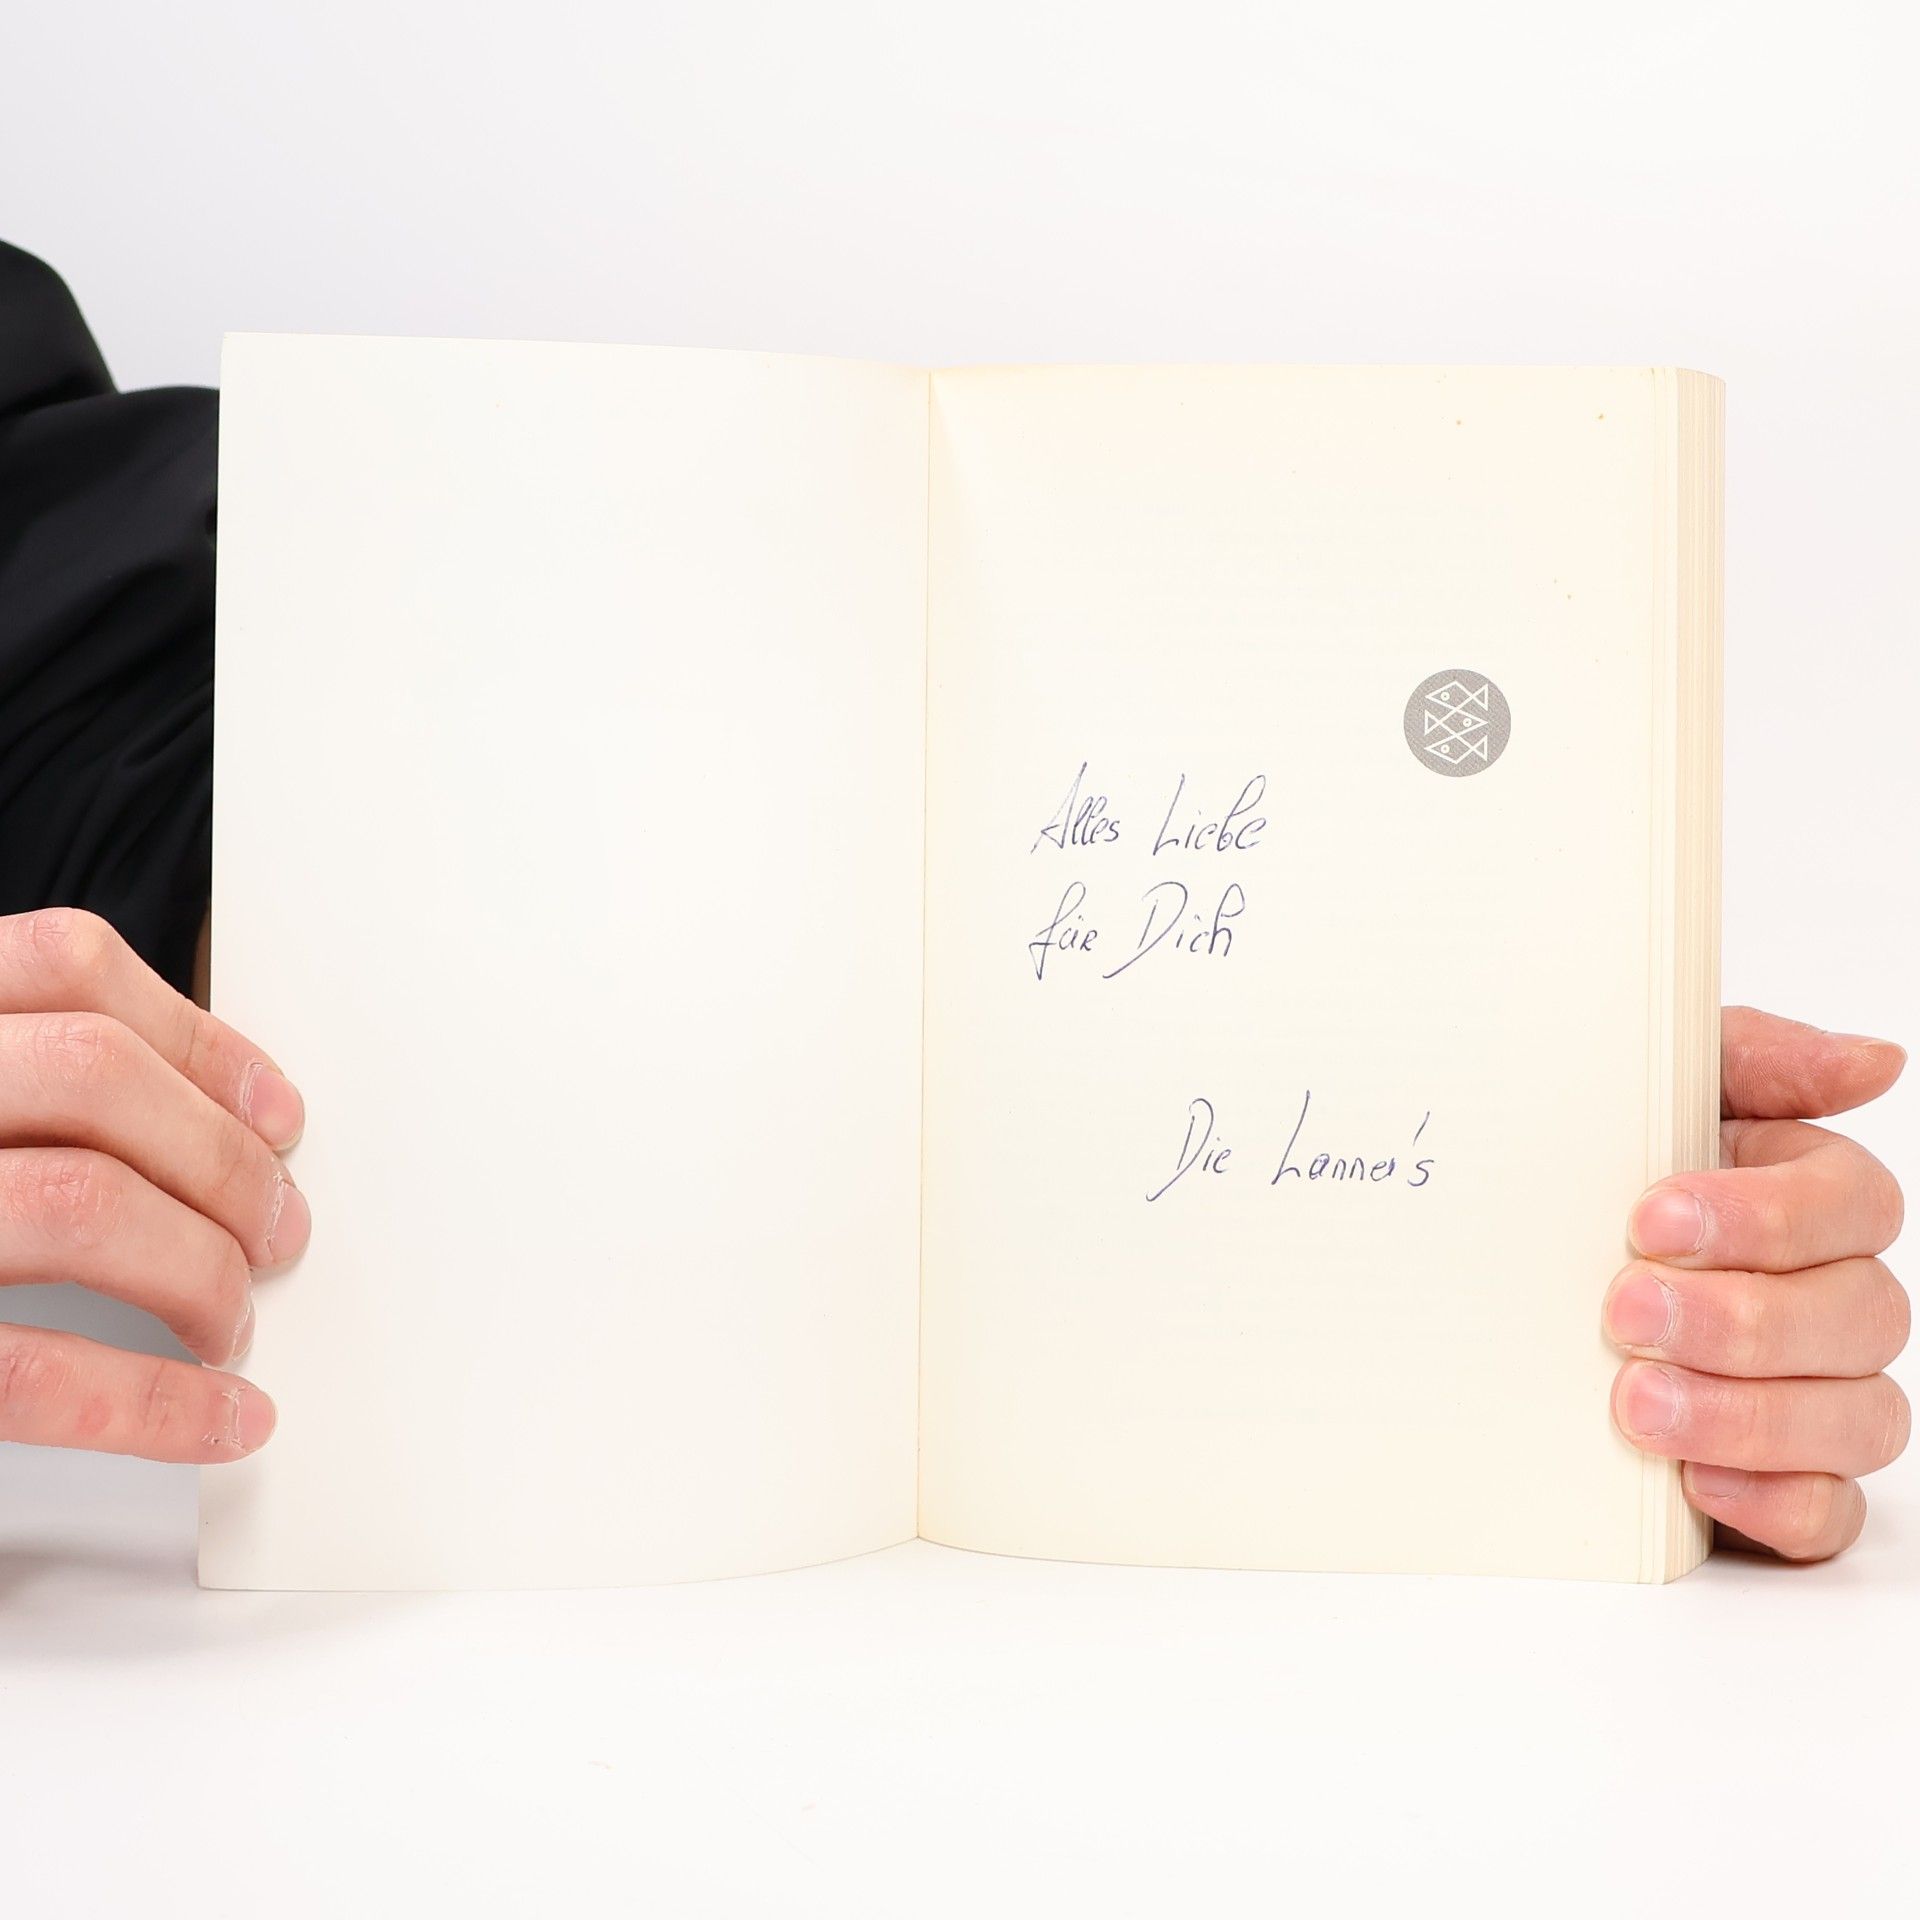 Alles Liebe
für Dich
Die Lanner's